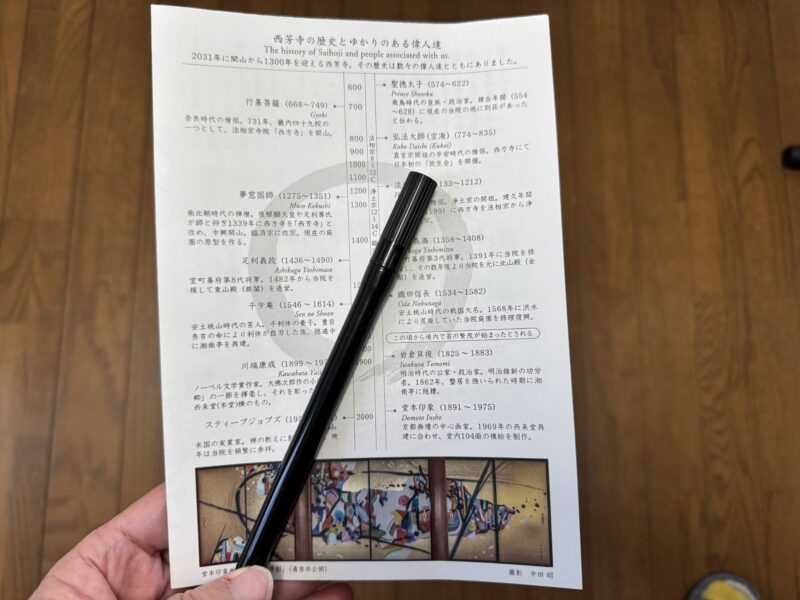 西芳寺の歴史とゆかりのある偉人達
The history of Saihoji and people associated with us.
2031年に開山から1300年を迎える西芳寺。その歴史は数々の偉人達とともにありました。
600
700
800
900
1000
1100
1200
1300
1400
1900
2000
法相宗8~12C
浄土宗12~14C
聖徳太子 (574~622)
Prince Shotoku
飛鳥時代の皇族・政治家。推古年間 (554
~628) に現在の当院の地に別荘があった
と伝わる。
行基菩薩 (668~749)
Gyoki
奈良時代の僧侶。731年、畿内四十九院の
一つとして、法相宗寺院「西方寺」を開山。
弘法大師 (空海) (774~835)
Kobo Daishi (Kukai)
真言宗開祖の平安時代の僧侶。西方寺にて
日本初の「放生会」を開催。
法
133~1212)
僧侶、浄土宗の開祖。建久年間
199) に西方寺を法相宗から浄
夢窓国師 (1275~1351)
Muso Kokushi
南北朝時代の禅僧。後醍醐天皇や足利尊氏
が師と仰ぎ1339年に西方寺を「西芳寺」と
改め、中興開山。臨済宗に改宗。現在の庭
園の原型を作る。
義満 (1358~1408)
Yoshimitsu
町幕府第3代将軍。1391年に当院を修
し、その数年後より当院を元に北山殿 (金
閣) を造営。
足利義政 (1436~1490)
Ashikaga Yoshimasa
室町幕府第8代将軍。1482年から当院を
模して東山殿 (銀閣) を造営。
織田信長 (1534~1582)
Oda Nobunaga
安土桃山時代の戦国大名。1568年に洪水
により荒廃していた当院庭園を修理復興。
千少庵 (1546~1614)
Sen no Shoan
安土桃山時代の茶人。千利休の養子。豊臣
秀吉の命により利休が自刃した後、隠遁中
に湘南亭を再建。
この頃から境内で苔の繁茂が始まったとされる
岩倉具視 (1825~1883)
Iwakura Tomomi
明治時代の公家・政治家。明治維新の功労
者。1862年、蟄居を強いられた時期に湘
南亭に隠棲。
川端康成 (1899~197
Kawabata Yas
ノーベル文学賞作家。大佛次郎作の小
郷」の一節を揮毫し、それを彫った
西来堂(本堂)横のもの。
堂本印象 (1891~1975)
Domoto Insho
京都画壇の中心画家。1969年の西来堂再
建に合わせ、堂内104面の襖絵を制作。
スティーブジョブズ (195
米国の実業家。禅の教えに
晩
年は当院を頻繁に参拝。
堂本印象
(通常非公開)
撮影 中田 昭